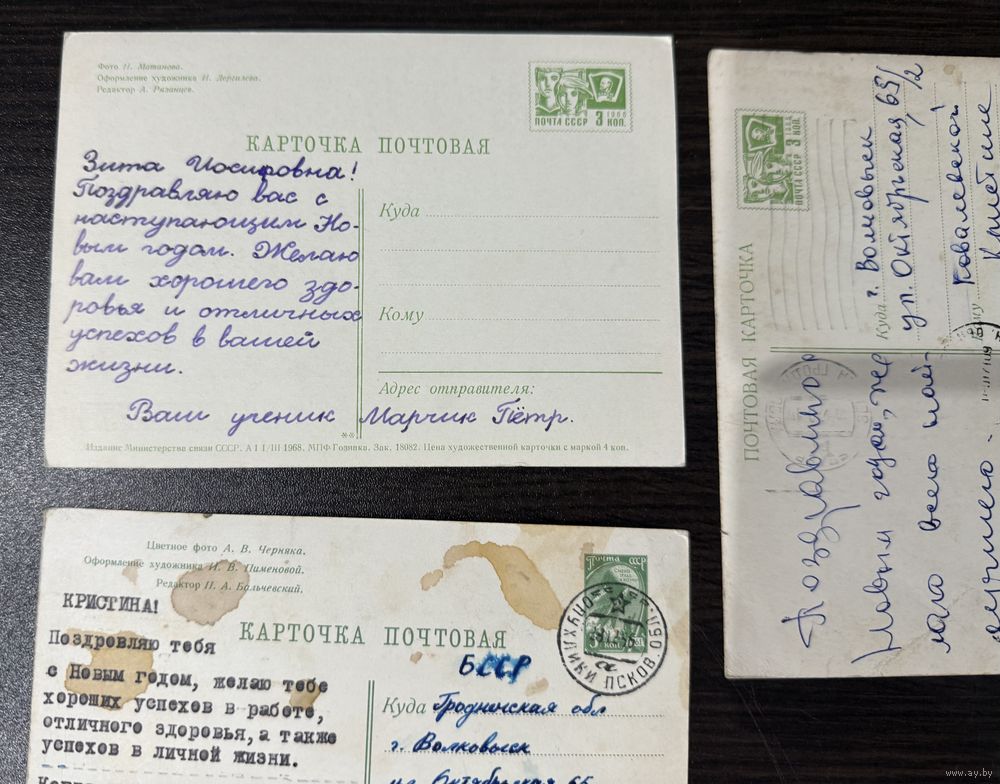 Фото Н. Матанова.
Оформление художника Н. Дергилева.
Редактор А. Рязанцев.
ПОЧТА СССР 3 КОП.
1966
КАРТОЧКА ПОЧТОВАЯ
Зита Иосифовна!
Поздравляю вас с
наступающим Но-
вым годом. Желаю
вам хорошего здо-
ровья и отличных
успехов в вашей
жизни.
Ваш ученик Марчик Пётр.
Куда
Кому
Адрес отправителя:
Издание Министерства связи СССР. А 1 1/III 1968. МПФ Гознака. Зак. 18082. Цена художественной карточки с маркой 4 коп.
Цветное фото А. В. Черняка.
Оформление художника И. В. Пименовой.
Редактор Н. А. Бальчевский.
Почта СССР
КАРТОЧКА ПОЧТОВАЯ
КРИСТИНА!
Поздровляю тебя
с Новым годом, желаю тебе
хороших успехов в работе,
отличного здоровья, а также
успехов в личной жизни.
БССР
Куда Гродненская обл
г. Волковыск
ул. Октябрьская 65
ПСКОВ. ОБЛ
ПОЧТА СССР 3 КОП.
ПОЧТОВАЯ КАРТОЧКА
Куда г. Волковыск
ул. Октябрьская, 65/2
Кому Ковалевской
Кристине
Поздравляю с
Новым годом, же
лаю всего най-